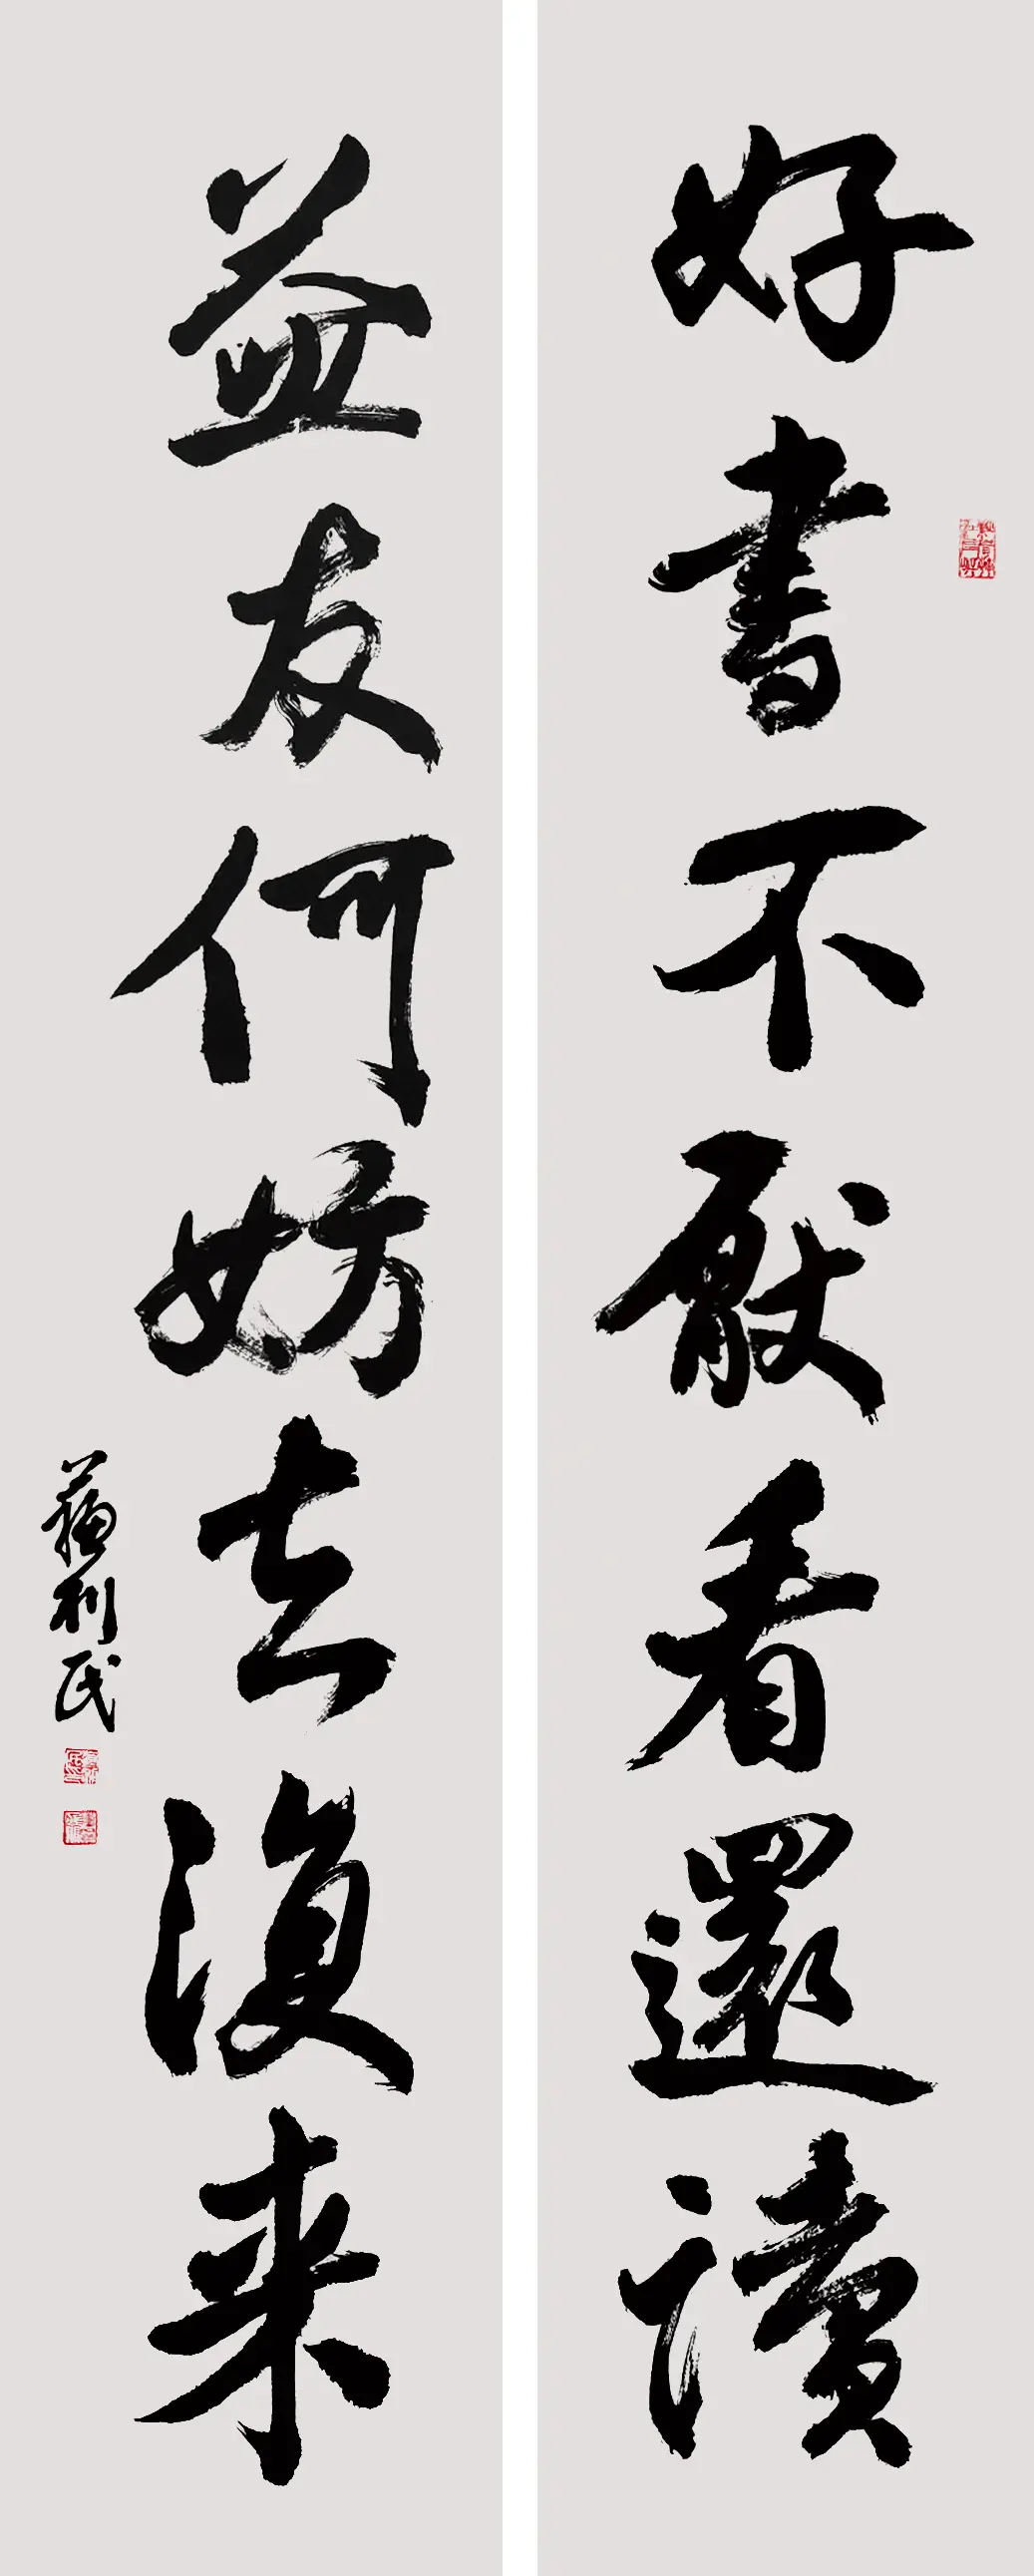 好書不厭看還讀
益友何妨去復来
蘇利民